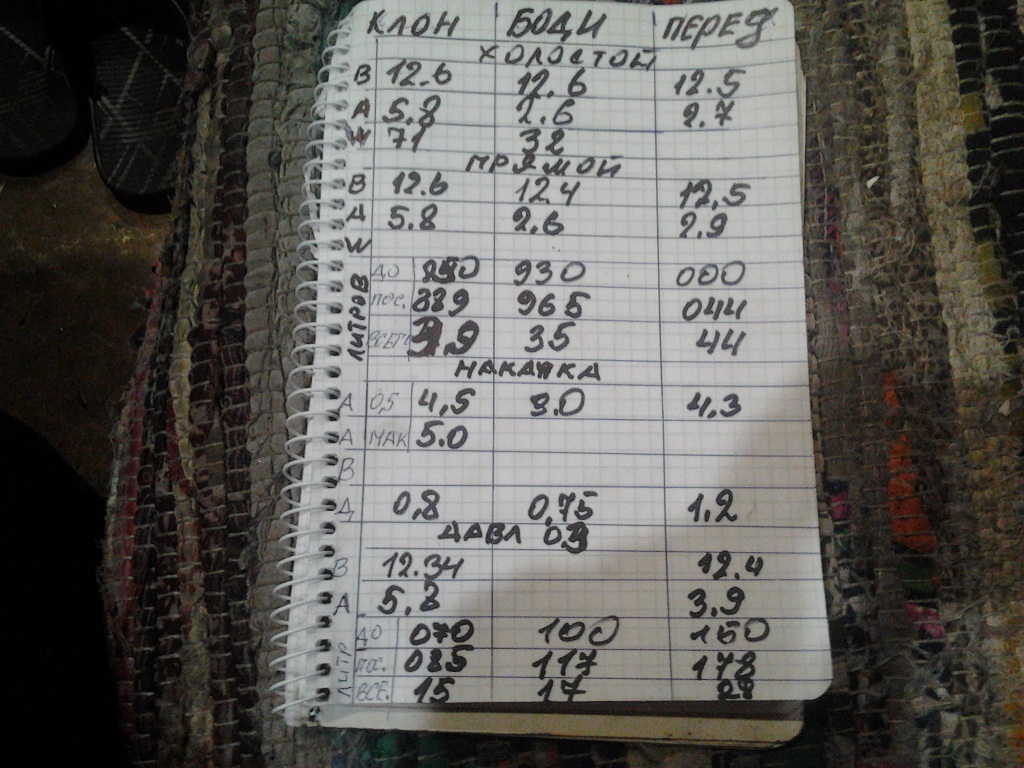 КЛОН БОДИ ПЕРЕД
ХОЛОСТОЙ
В 12.6 12.6 12.5
А 5.8 2.6 2.7
W 71 32
ПРЯМОЙ
В 12.6 12.4 12,5
А 5.8 2,6 2.9
W
ЛИТРОВ
ДО 930 000
ПОС. 889 965 044
ВСЕГО 35 44
НАКАЧКА
А 0,5 4,5 3.0 4,3
А МАК 5.0
В
Д 0,8 0,75 1,2
ДАВЛ 0.3
В 12.34 12.4
А 5,8 3.9
ЛИТР
ДО 070 100 150
ПОС. 085 117 178
ВСЕ. 15 17 28